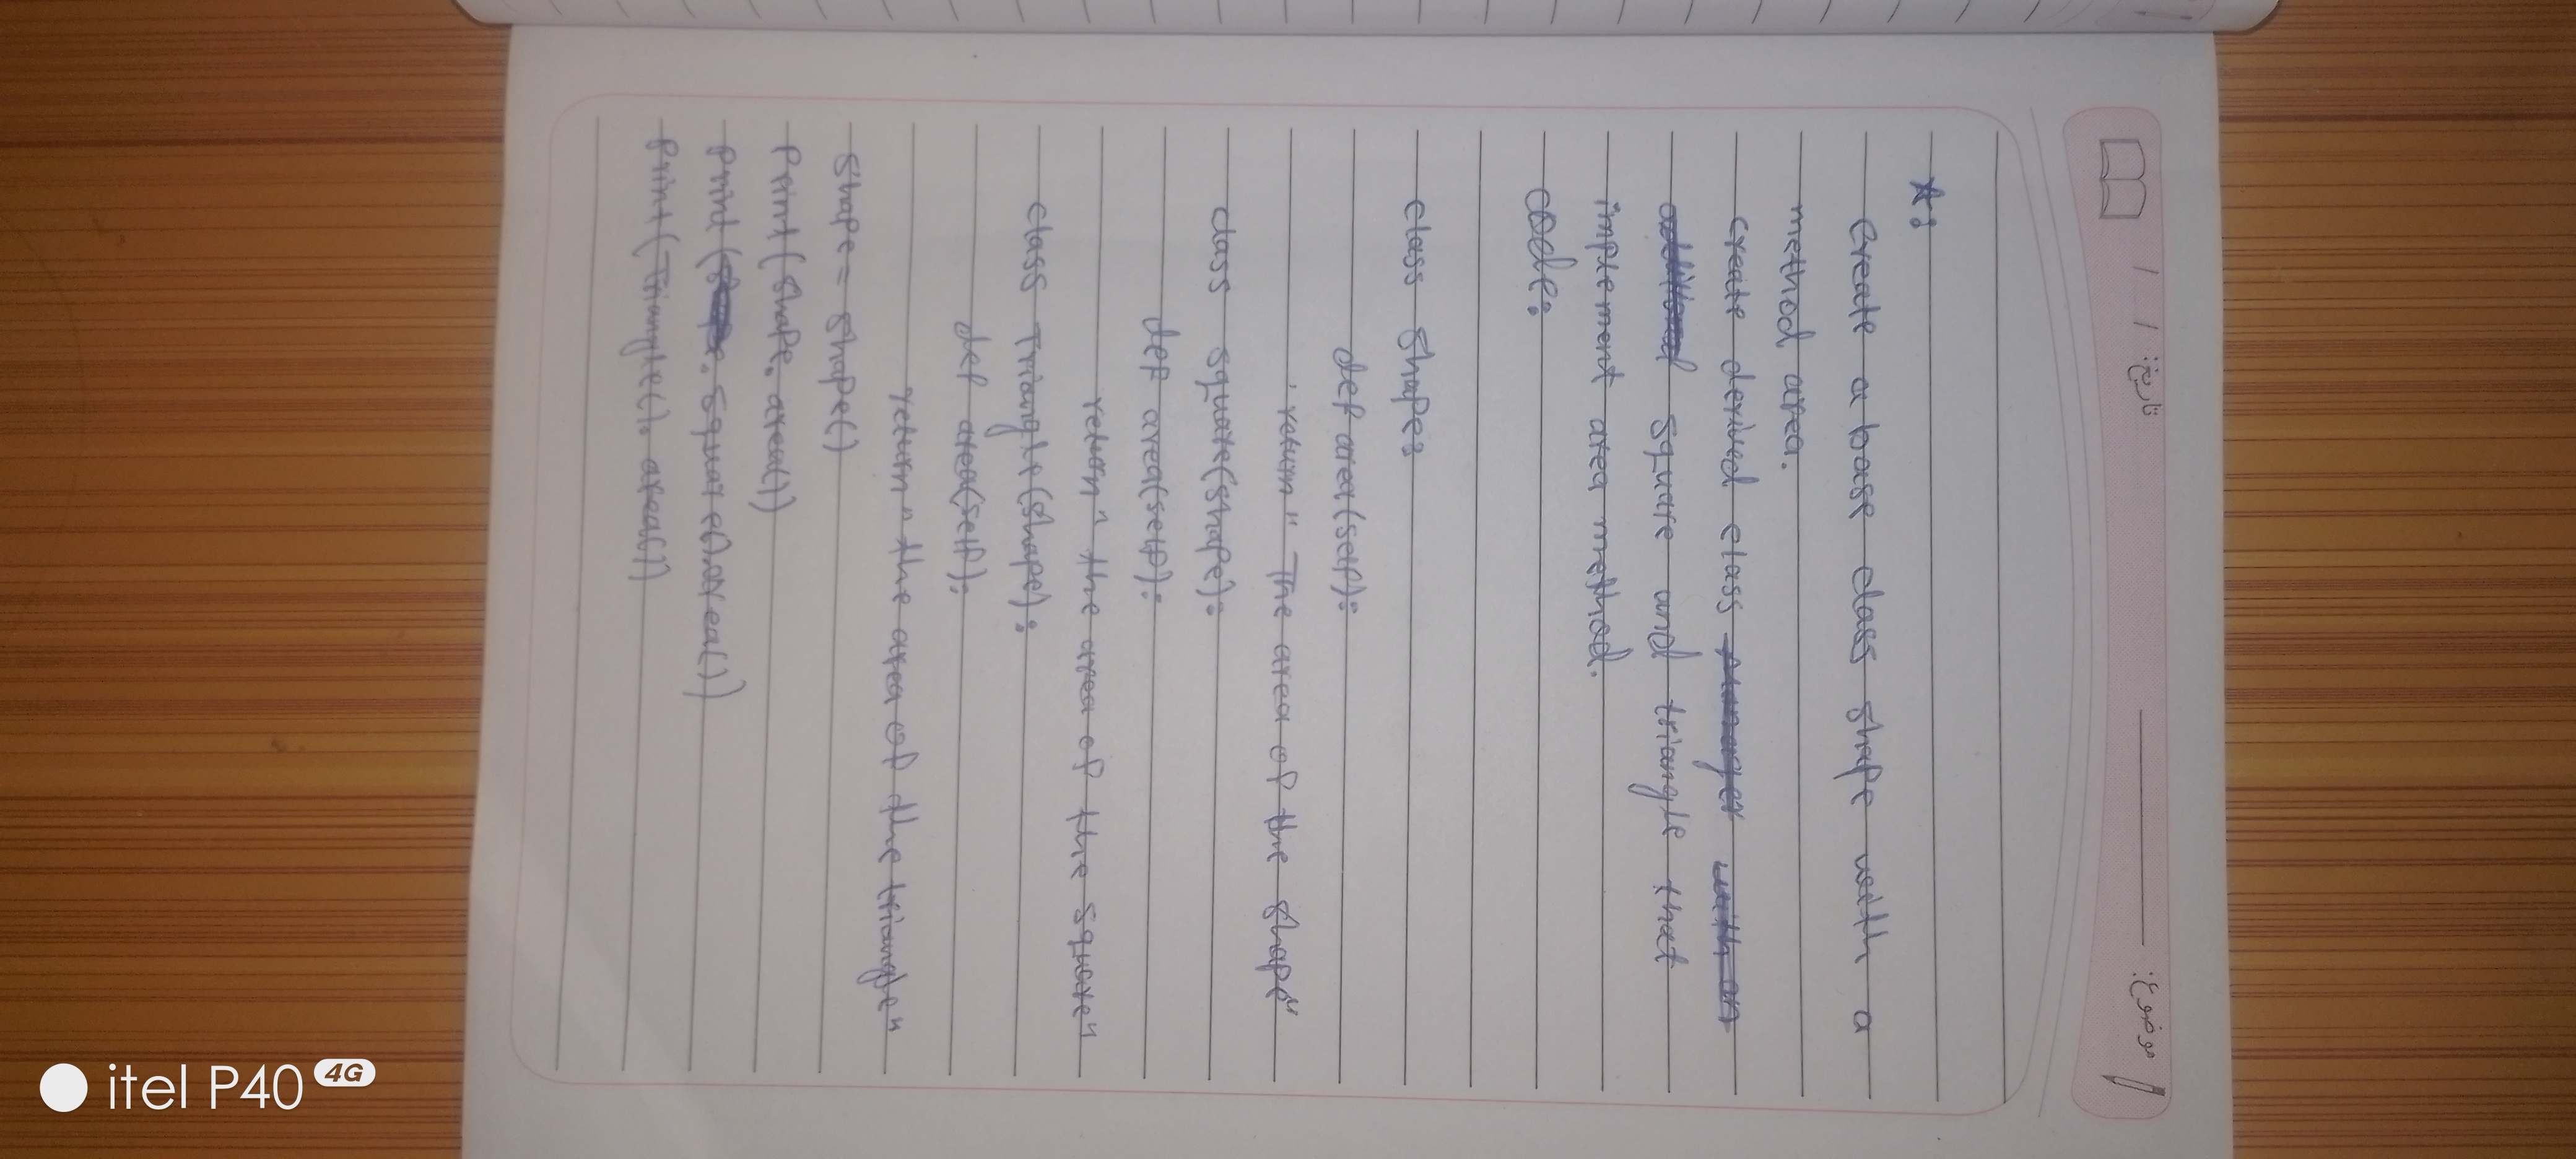 تاریخ: / /
موضوع:
*:
Create a base class shape with a
method area.
Create derived class
square and triangle that
implement area method.
Code:
class Shape:
def area(self):
return "The area of the shape"
class square(shape):
def area(self):
return "the area of the square"
class Triangle(shape):
def area(self):
return "the area of the triangle"
shape = shape()
Print(shape.area())
print( . square().area())
print(Triangle().area())
itel P40 4G